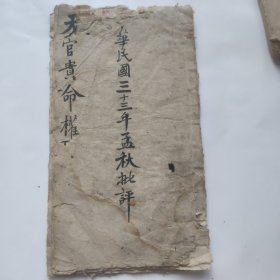 華民國三十三年孟秋批評
官貴命權